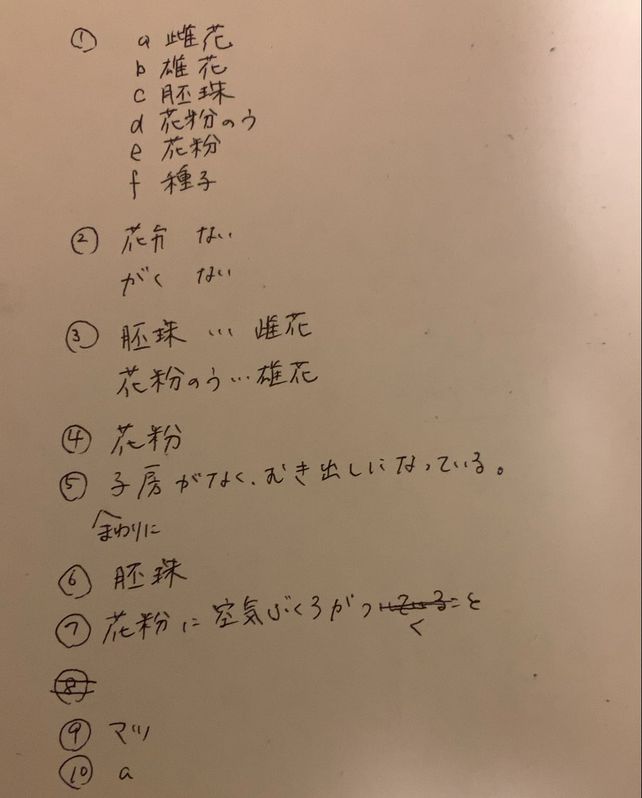 ① a 雌花
b 雄花
c 胚珠
d 花粉のう
e 花粉
f 種子
② 花弁 ない
がく ない
③ 胚珠 … 雌花
花粉のう … 雄花
④ 花粉
⑤ 子房がなく、むき出しになっている。
まわりに
⑥ 胚珠
⑦ 花粉に空気ぶくろがついていること
く
⑧
⑨ マツ
⑩ a